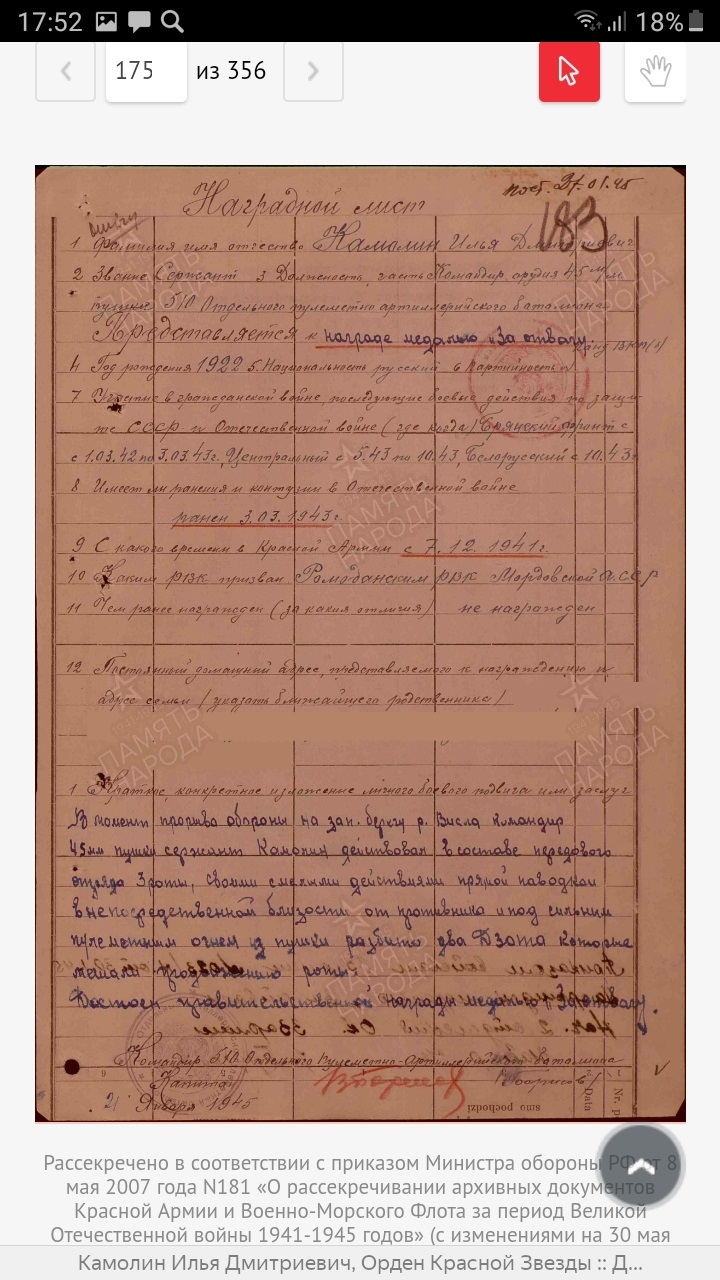 17:52
18%
175 из 356
пост. 21.01.45
183
Наградной лист
1 Фамилия имя отчество Камолин Илья Дмитриевич
2 Звание Сержант 3 Должность, часть Командир орудия 45 м/м
пушки 510 Отдельного пулеметно артиллерийского баталиона
Представляется к награде медалью «За отвагу»
4 Год рождения 1922 5. Национальность русский 6 Партийность канд ВКП(б)
7 Участие в гражданской войне, последующие боевые действия по защи-
те СССР и Отечественной войне (где когда) Брянский фронт с
с 1.03.42 по 3.03.43г., Центральный с 5.43 по 10.43, Белорусский с 10.43г
8 Имеет ли ранения и контузии в Отечественной войне
ранен 3.03.1943г.
9 С какого времени в Красной Армии с 7.12.1941г.
10 Каким РВК призван Ромодановским РВК Мордовской а.с.с р
11 Чем ранее награжден (за какия отличия) не награжден
12 Постоянный домашний адрес, представляемого к награждению и
адрес семьи / указать ближайшего родственника /
1 Краткое, конкретное изложение личного боевого подвига или заслуг
В момент прорыва обороны на зап. берегу р. Висла командир
45мм пушки сержант Камолин действовал в составе передового
отряда 3 роты, своими смелыми действиями прямой наводкой
в непосредственной близости от противника и под сильным
пулеметным огнем из пушки разбито два Дзота которые
мешали продвижению роты.
Достоен правительственной награды медалью "За отвагу".
Командир 510 Отдельного Пулеметно-Артиллерийского баталиона
Капитан /Борисов/
21 Января 1945
smo pochodzi
Data
Nr. p
ПАМЯТЬ НАРОДА
ПАМЯТЬ НАРОДА
ПАМЯТЬ НАРОДА
ПАМЯТЬ НАРОДА
ПАМЯТЬ НАРОДА
ПАМЯТЬ НАРОДА
Рассекречено в соответствии с приказом Министра обороны РФ от 8
мая 2007 года N181 «О рассекречивании архивных документов
Красной Армии и Военно-Морского Флота за период Великой
Отечественной войны 1941-1945 годов» (с изменениями на 30 мая
Камолин Илья Дмитриевич, Орден Красной Звезды :: Д...